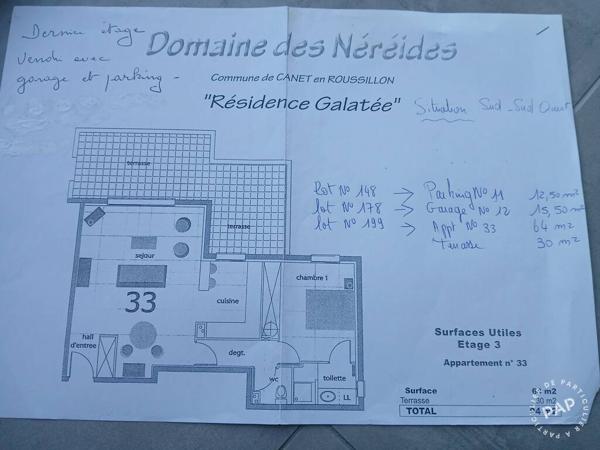 Dernier étage
Vendu avec
garage et parking -
Domaine des Néréides
Commune de CANET en ROUSSILLON
"Résidence Galatée"
Situation Sud-Sud Ouest
terrasse
terrasse
Lot N° 148 → Parking N° 11 12,50 m2
Lot N° 178 → Garage N° 12 15,50 m2
Lot N° 199 → Appt N° 33 64 m2
Terrasse 30 m2
sejour
chambre 1
33
cuisine
hall
d'entree
degt.
wc
toilette
LL
Surfaces Utiles
Etage 3
Appartement n° 33
Surface 64 m2
Terrasse 30 m2
TOTAL
DE PARTICULIER A PARTICULIER
PAP